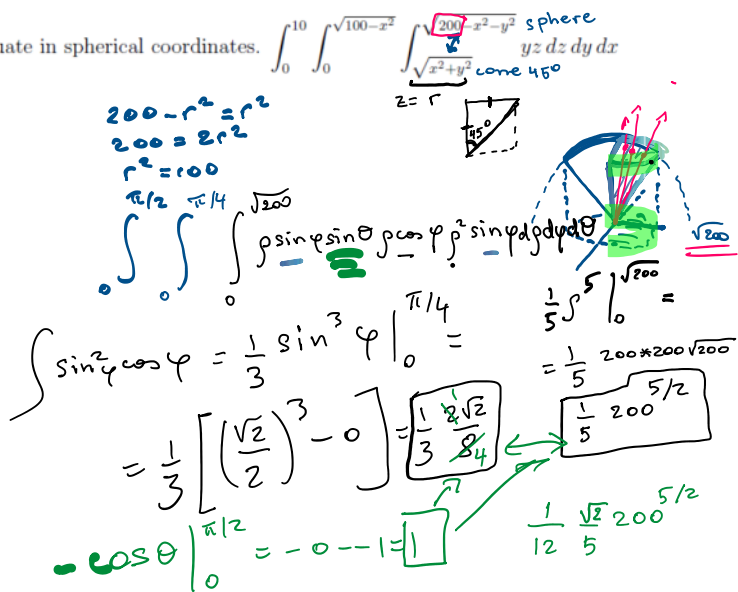 uate in spherical coordinates. ∫_0^{10} ∫_0^{√(100−x²)} ∫_{√(x²+y²)}^{√(200−x²−y²)} yz dz dy dx
sphere
cone 45°
z = r
45°
200 − r² = r²
200 = 2r²
r² = 100
∫_0^{π/2} ∫_0^{π/4} ∫_0^{√200} ρ sin φ sin θ ρ cos φ ρ² sin φ dρ dφ dθ
√200
1/5 ρ^5 |_0^{√200} =
= 1/5 200*200√200
1/5 200^{5/2}
∫ sin²φ cos φ = 1/3 sin³ φ |_0^{π/4} =
= 1/3 [(√2/2)³ − 0] = 1/3 2√2/8 1 4
− cos θ |_0^{π/2} = − 0 − − 1 = 1
1/12 √2/5 200^{5/2}